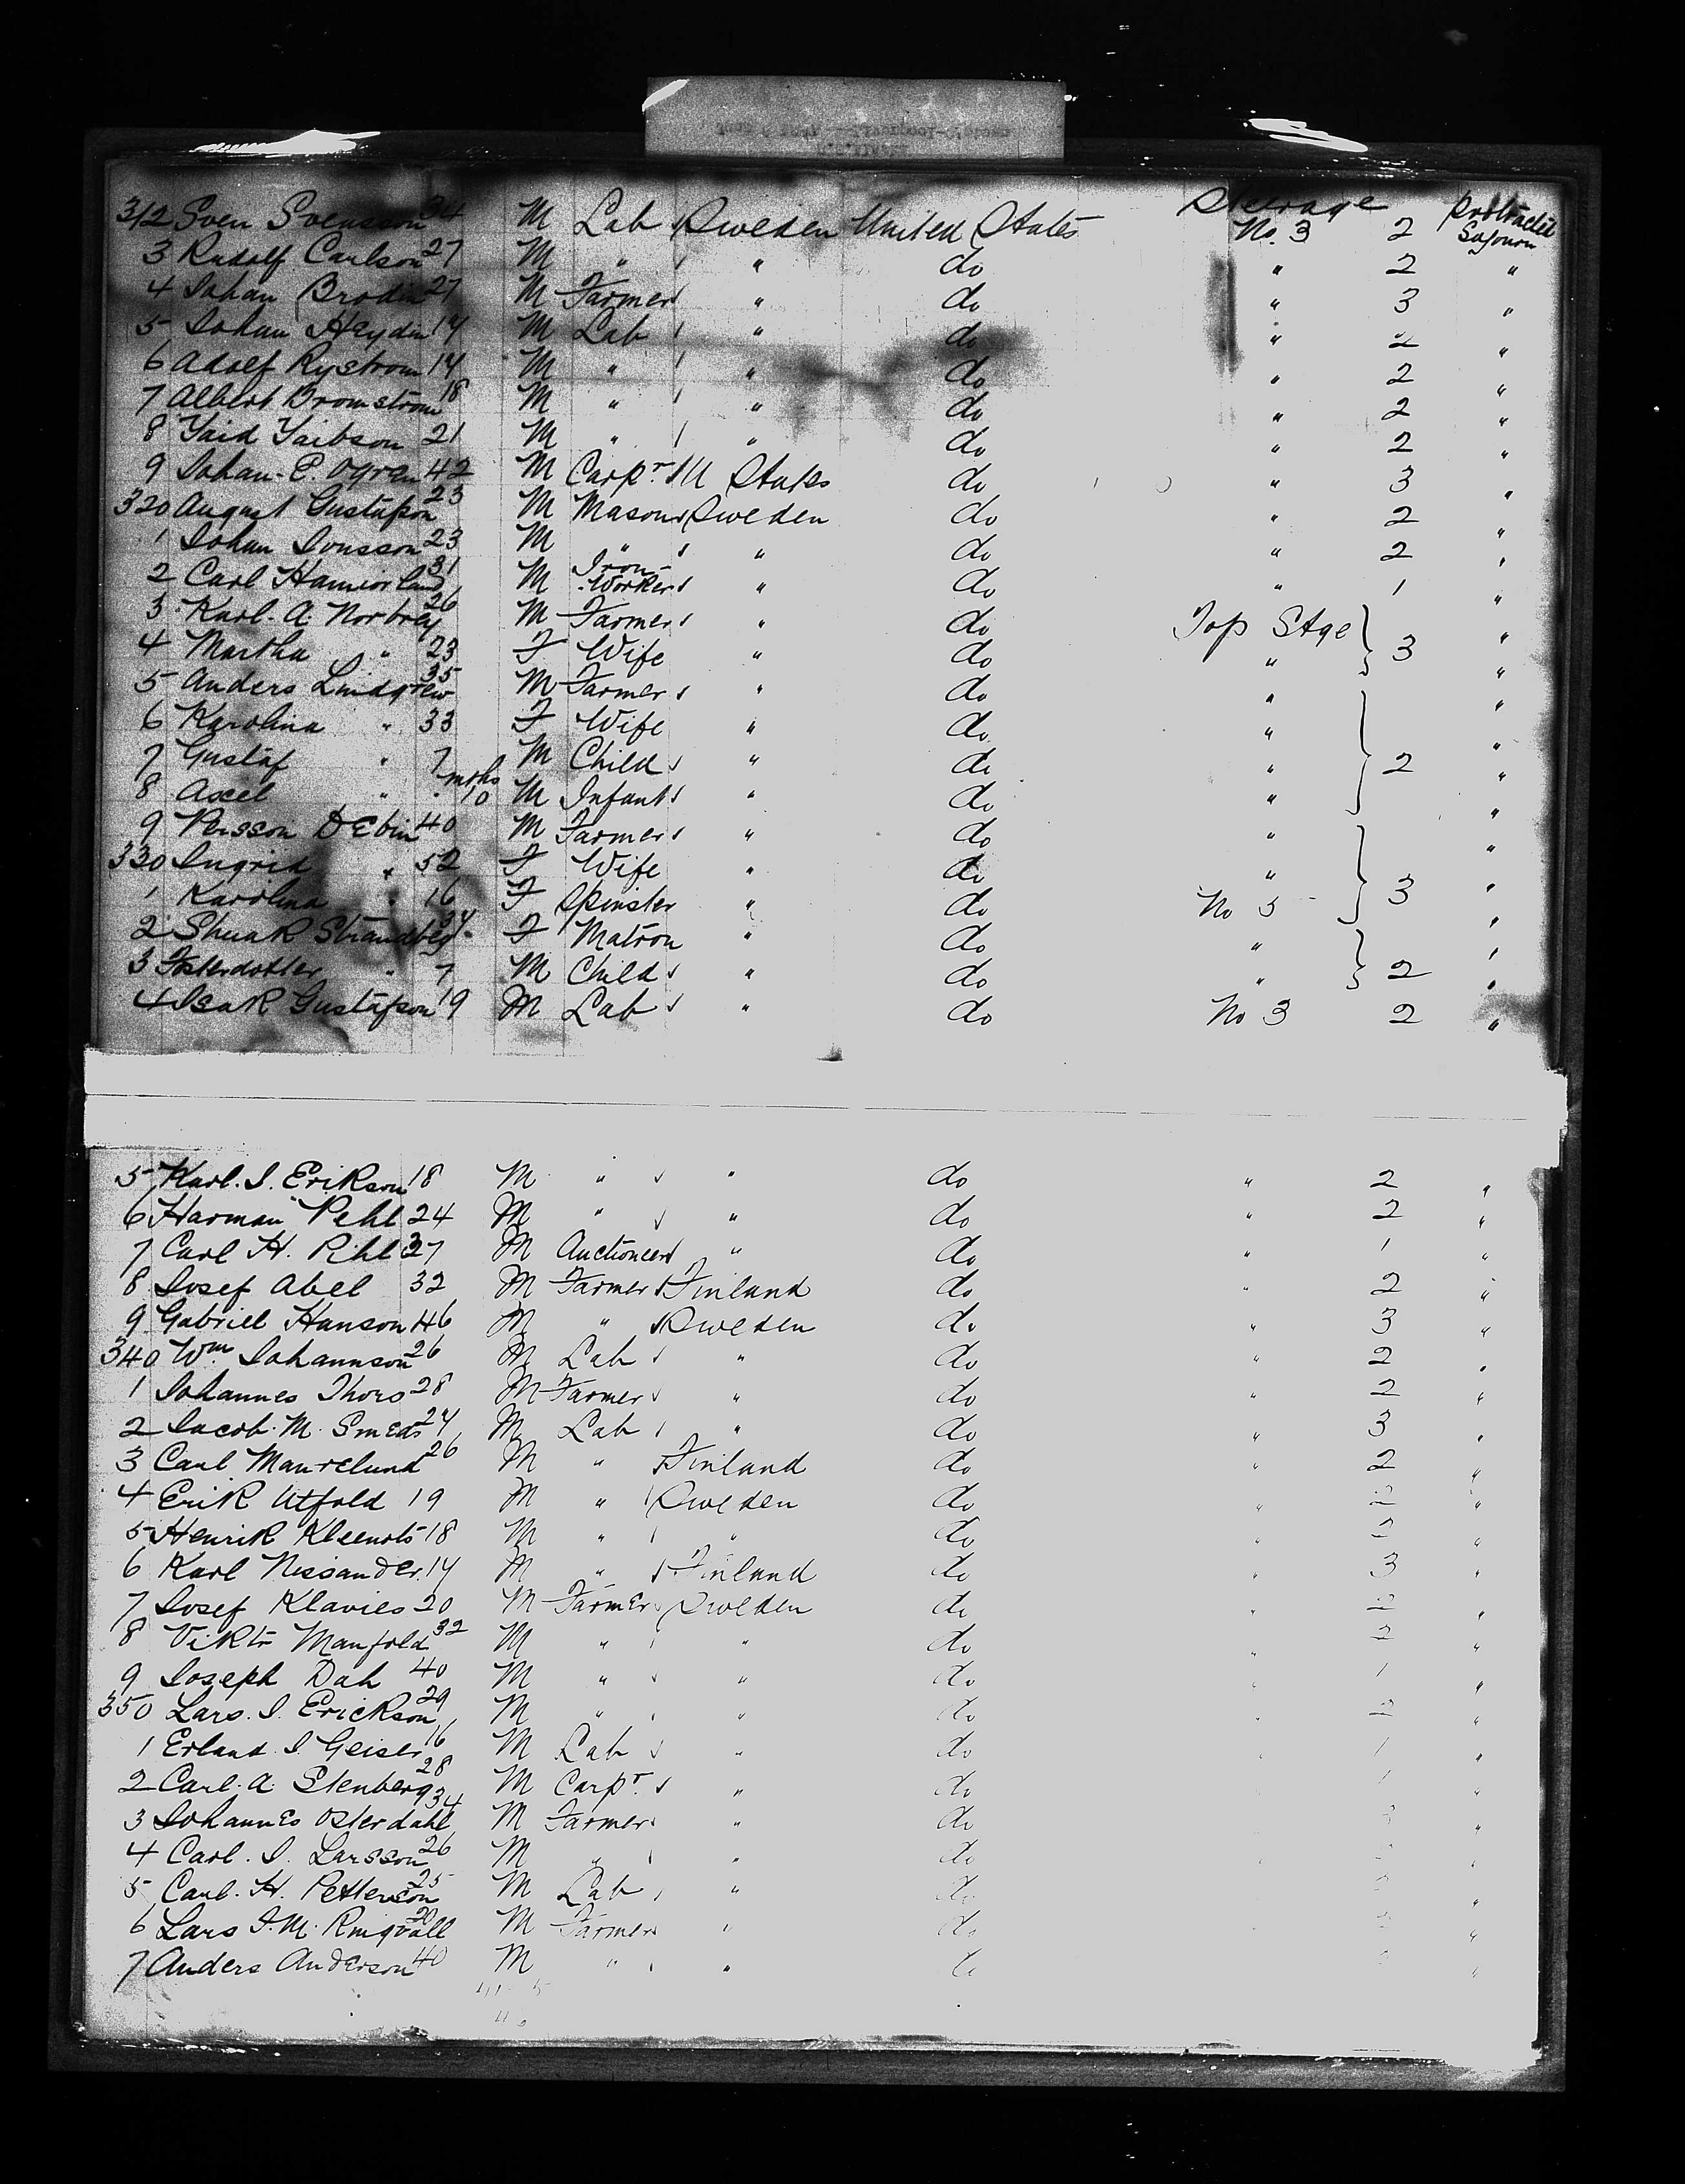 Steerage Protracted
312 Sven Svensson 34 M Lab Sweden United States No. 3 2 Sojourn
3 Rudolf Carlson 27 M " " do " 2 "
4 Johan Brodin 27 M Farmer " do " 3 "
5 Johan Heydin 14 M Lab " do " 2 "
6 Adolf Rystrom 14 M " " do " 2 "
7 Albert Bromstrom 18 M " " do " 2 "
8 Yaid Yaibson 21 M " " do " 2 "
9 Johan. E. Ogren 42 M Carpr. U States do " 3 "
320 August Gustafson 23 M Mason Sweden do " 2 "
1 Johan Jonsson 23 M " " do " 2 "
2 Carl 31 M Iron-Worker " do " 1 "
3 Karl. A. Norbrey 26 M Farmer " do Top Stge 3 "
4 Martha " 23 F Wife " do " "
5 Anders Lindgrew 35 M Farmer " do " "
6 Karolina " 33 F Wife " do " "
7 Gustaf " 7 M Child " do " 2 "
8 Axel " mths 10 M Infant " do " "
9 Persson D Ebin 40 M Farmer " do " "
330 Ingrid " 52 F Wife " do " "
1 Karolina " 16 F Spinster " do No 5 3 "
2 Strandberg 34 F Matron " do " "
3 " 7 M Child " do " 2 "
4 Isak Gustafson 19 M Lab " do No 3 2 "
5 Karl. J. Erikson 18 M " " do " 2 "
6 Harman Pehl 24 M " " do " 2 "
7 Carl H. Pihl 27 M Auctioneer " do " 1 "
8 Josef Abel 32 M Farmer Finland do " 2 "
9 Gabriel Hanson 46 M " Sweden do " 3 "
340 Wm Johannson 26 M Lab " do " 2 "
1 Johannes Thors 28 M Farmer " do " 2 "
2 Jacob. M. Smeds 24 M Lab " do " 3 "
3 Carl Manrelund 26 M " Finland do " 2 "
4 Erik Utfold 19 M " Sweden do " 2 "
5 Henrik Kleenots 18 M " " do " 2 "
6 Karl Nissander. 14 M " Finland do " 3 "
7 Josef Klavies 20 M Farmer Sweden do " 2 "
8 Viktr Manfold 32 M " " do " 2 "
9 Joseph Dah 40 M " " do " 1 "
350 Lars. J. Erickson 29 M " " do " 2 "
1 Erland J. Geiser 16 M Lab " do " 1 "
2 Carl. A. Stenberg 28 M Carpr. " do 1 "
3 Johannes Osterdahl 34 M Farmer " do "
4 Carl. J. Larsson 26 M " " do "
5 Carl. H. Petterson 25 M Lab " do "
6 Lars J. M. Ringvall 20 M Farmer " do "
7 Anders Anderson 40 M " " "